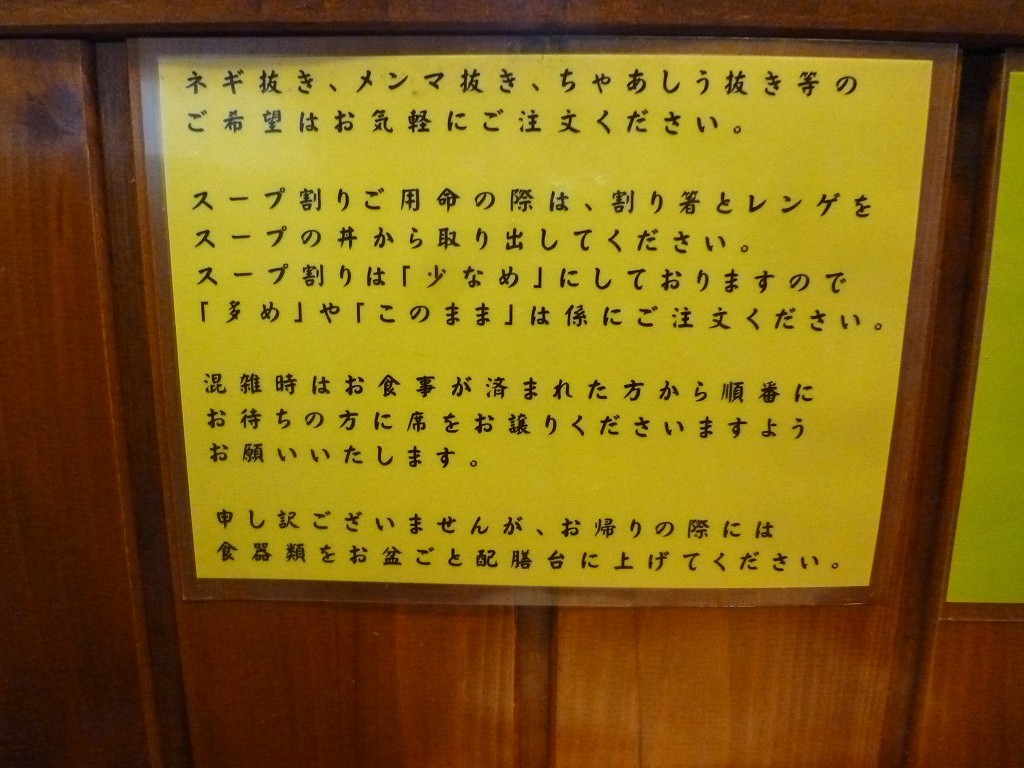 ネギ抜き、メンマ抜き、ちゃあしう抜き等の
ご希望はお気軽にご注文ください。
スープ割りご用命の際は、割り箸とレンゲを
スープの丼から取り出してください。
スープ割りは「少なめ」にしておりますので
「多め」や「このまま」は係にご注文ください。
混雑時はお食事が済まれた方から順番に
お待ちの方に席をお譲りくださいますよう
お願いいたします。
申し訳ございませんが、お帰りの際には
食器類をお盆ごと配膳台に上げてください。